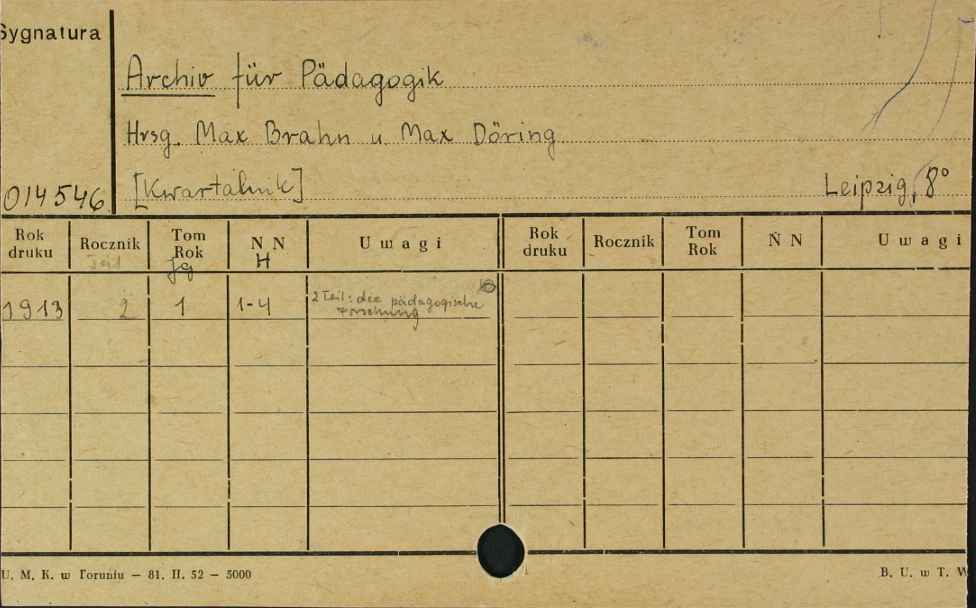 Sygnatura
Archiv für Pädagogik
Hrsg. Max Brahn u. Max Döring
014546 [Kwartalnik] Leipzig, 8°
Rok druku Rocznik Tom Rok N N U w a g i Rok druku Rocznik Tom Rok N N U w a g i
Teil Jg H
1913 2 1 1-4 2 Teil: die pädagogische
Forschung
U. M. K. w Toruniu — 81. II. 52 — 5000 B. U. w T. W